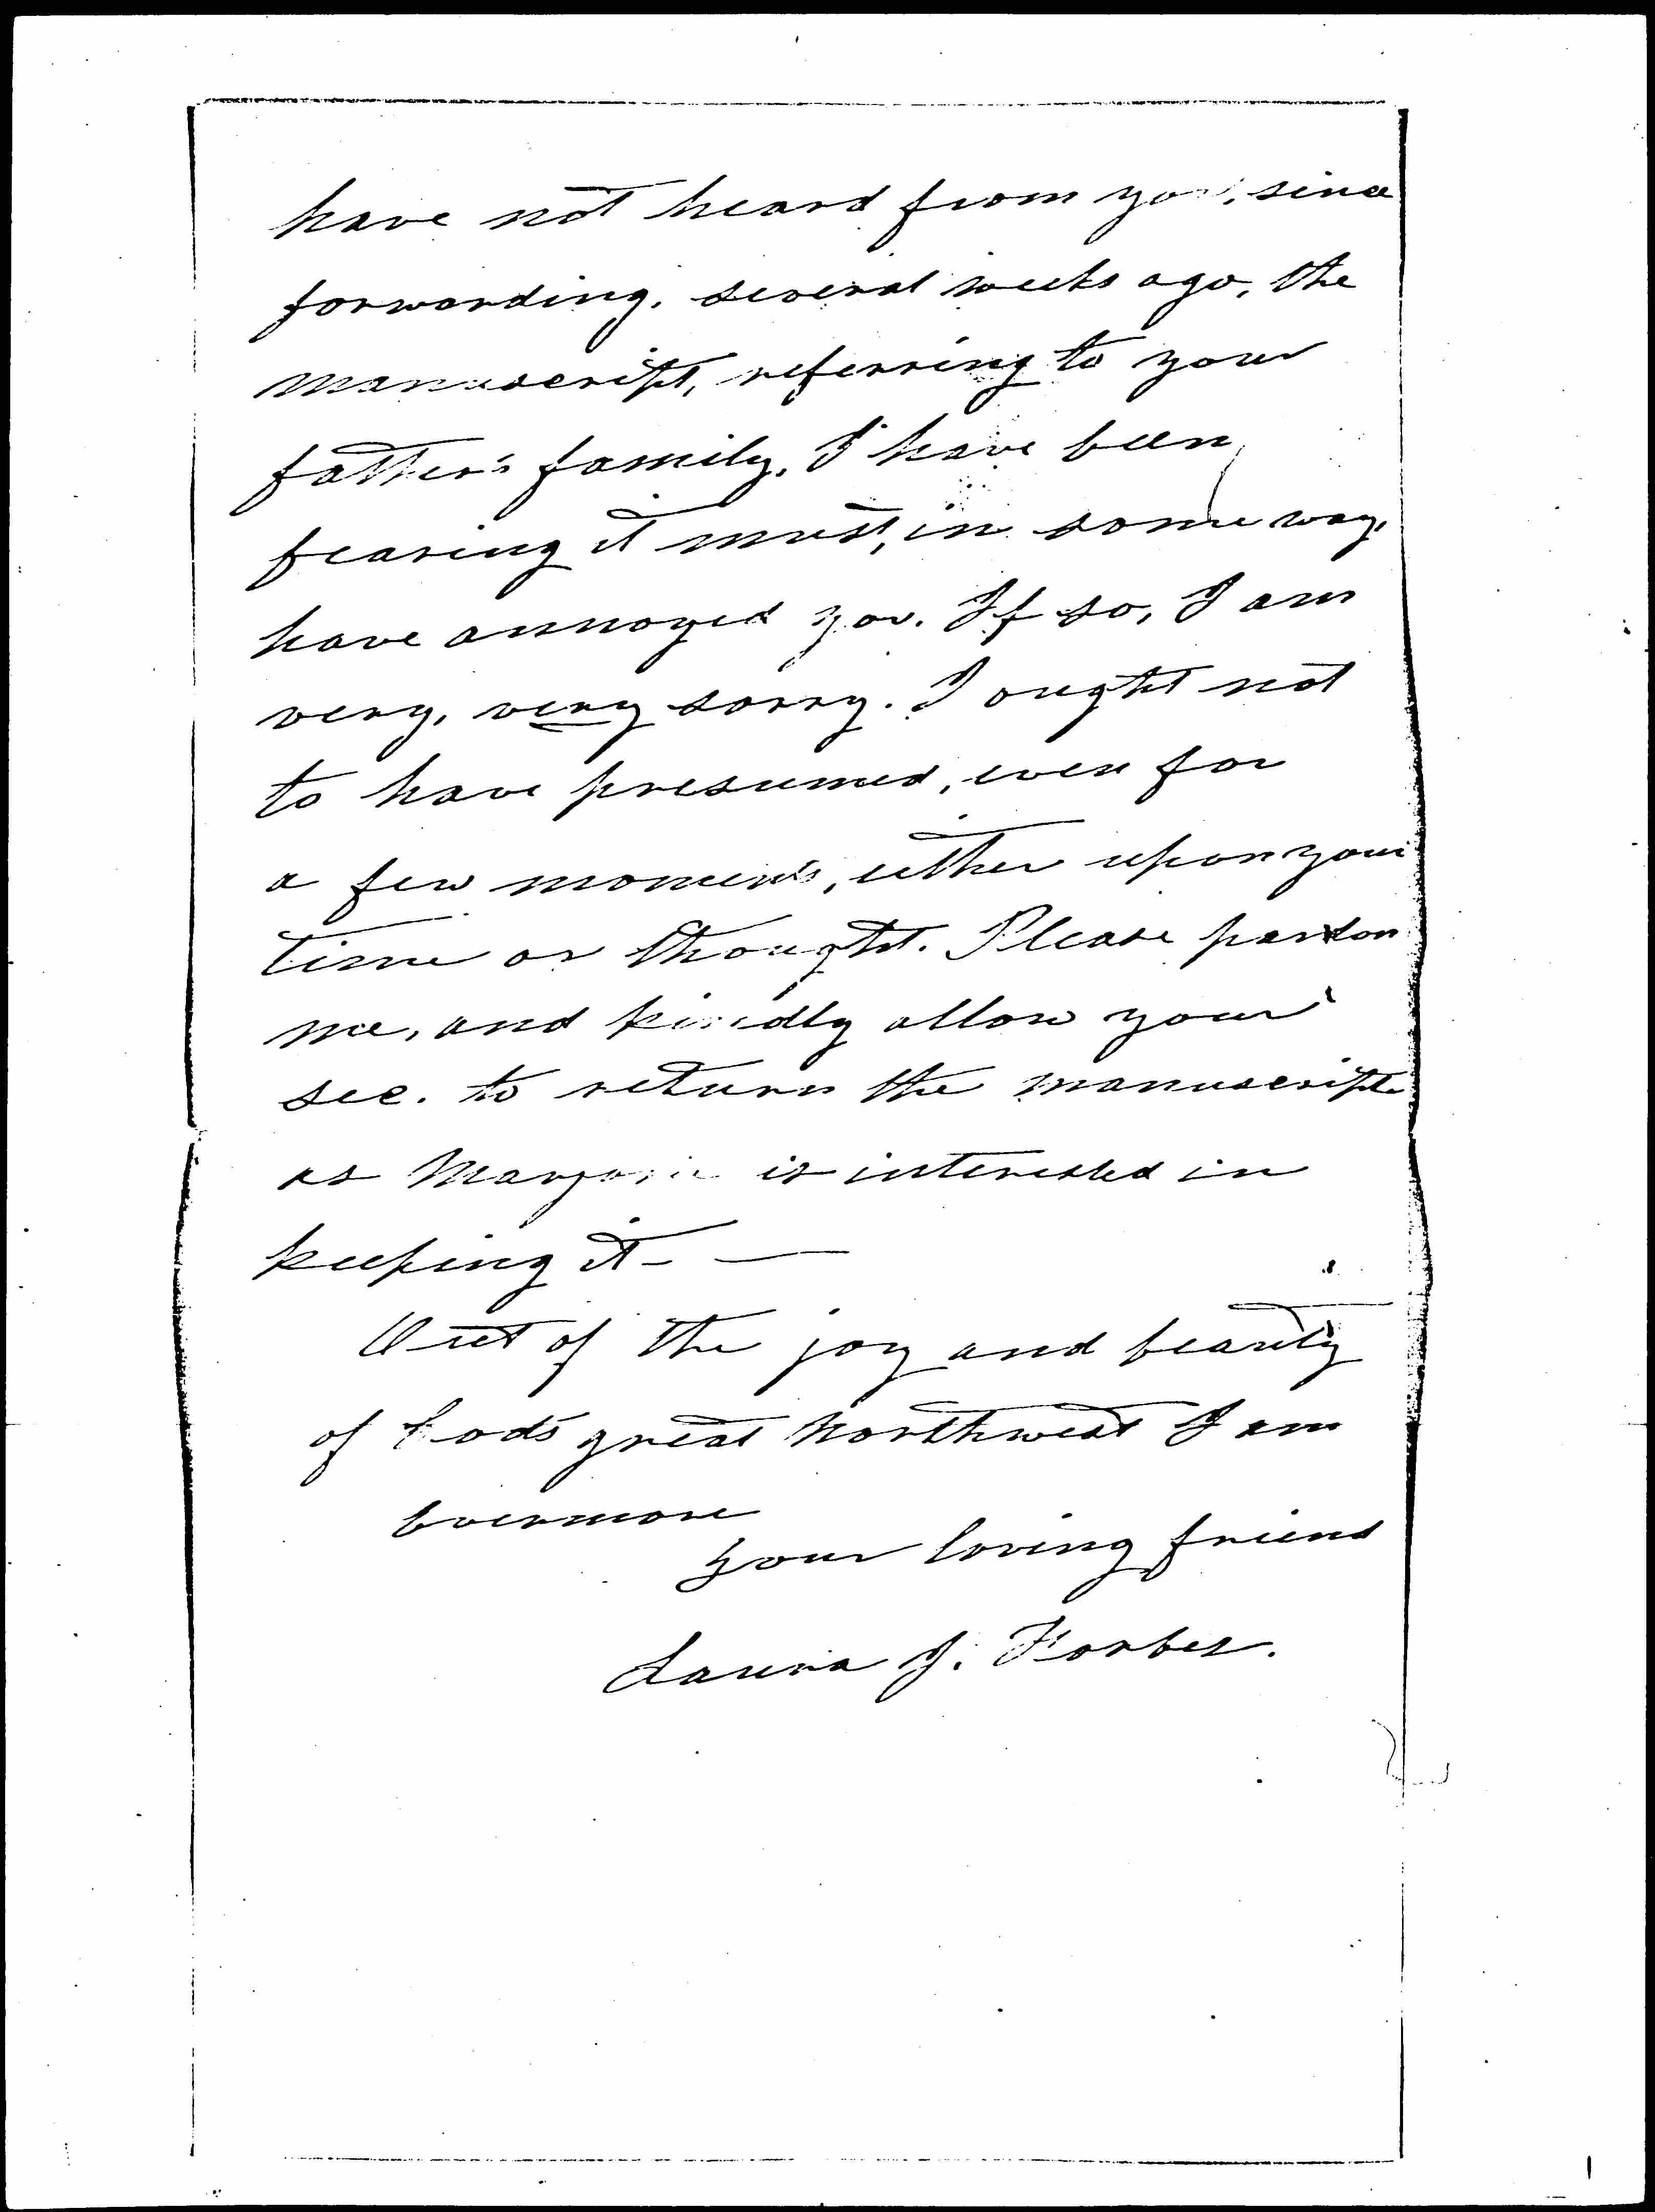 have not heard from you, since
forwarding, several weeks ago, the
manuscript, referring to your
father's family, I have been
fearing it must, in some way,
have annoyed you. If so, I am
very, very sorry. I ought not
to have presumed, even for
a few moments, either upon your
time or thought. Please pardon
me, and kindly allow your
sec. to return the manuscript
as Marjorie is interested in
keeping it - —
Out of the joy and beauty
of God's great Northwest I am
Evermore
your loving friend
Laura J. Forbes.